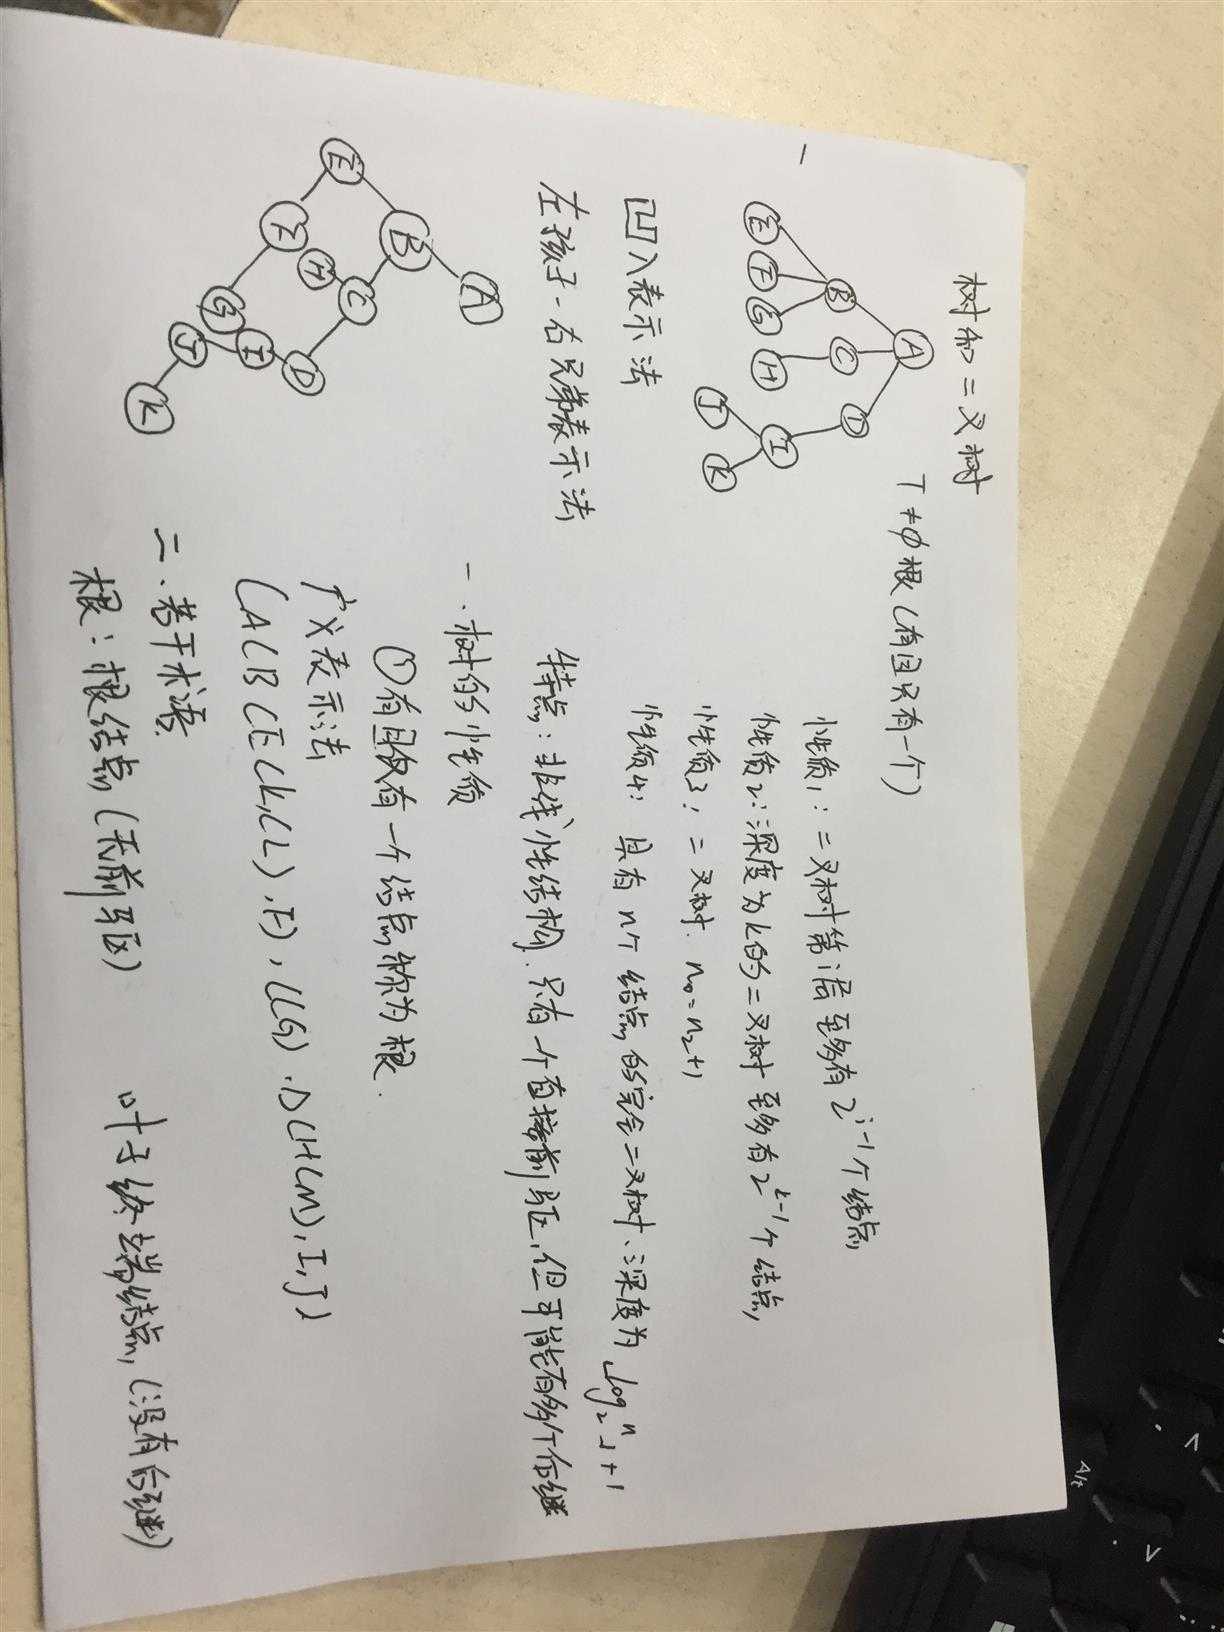 树和二叉树
T≠φ 根(有且只有一个)
一
A
B C D
E F G H I
J K
性质1：二叉树第i层至多有2^i-1个结点
性质2：深度为k的二叉树至多有2^k-1个结点
性质3：二叉树.n0=n2+1
性质4：具有n个结点的完全二叉树、深度为⌊log2^n⌋+1
凹入表示法
左孩子-右兄弟表示法
特点：非线性结构.只有一个直接前驱,但可能有多个后继
A
B
E C
F H D
G I
J
K
一.树的性质
①有且仅有一个结点称为根.
广义表示法
(A(B(E(K,L),F),C(G).D(H(M),I,J)
二.若干术语
根：根结点(无前驱)
叶子终端结点,(没有后继)
Alt